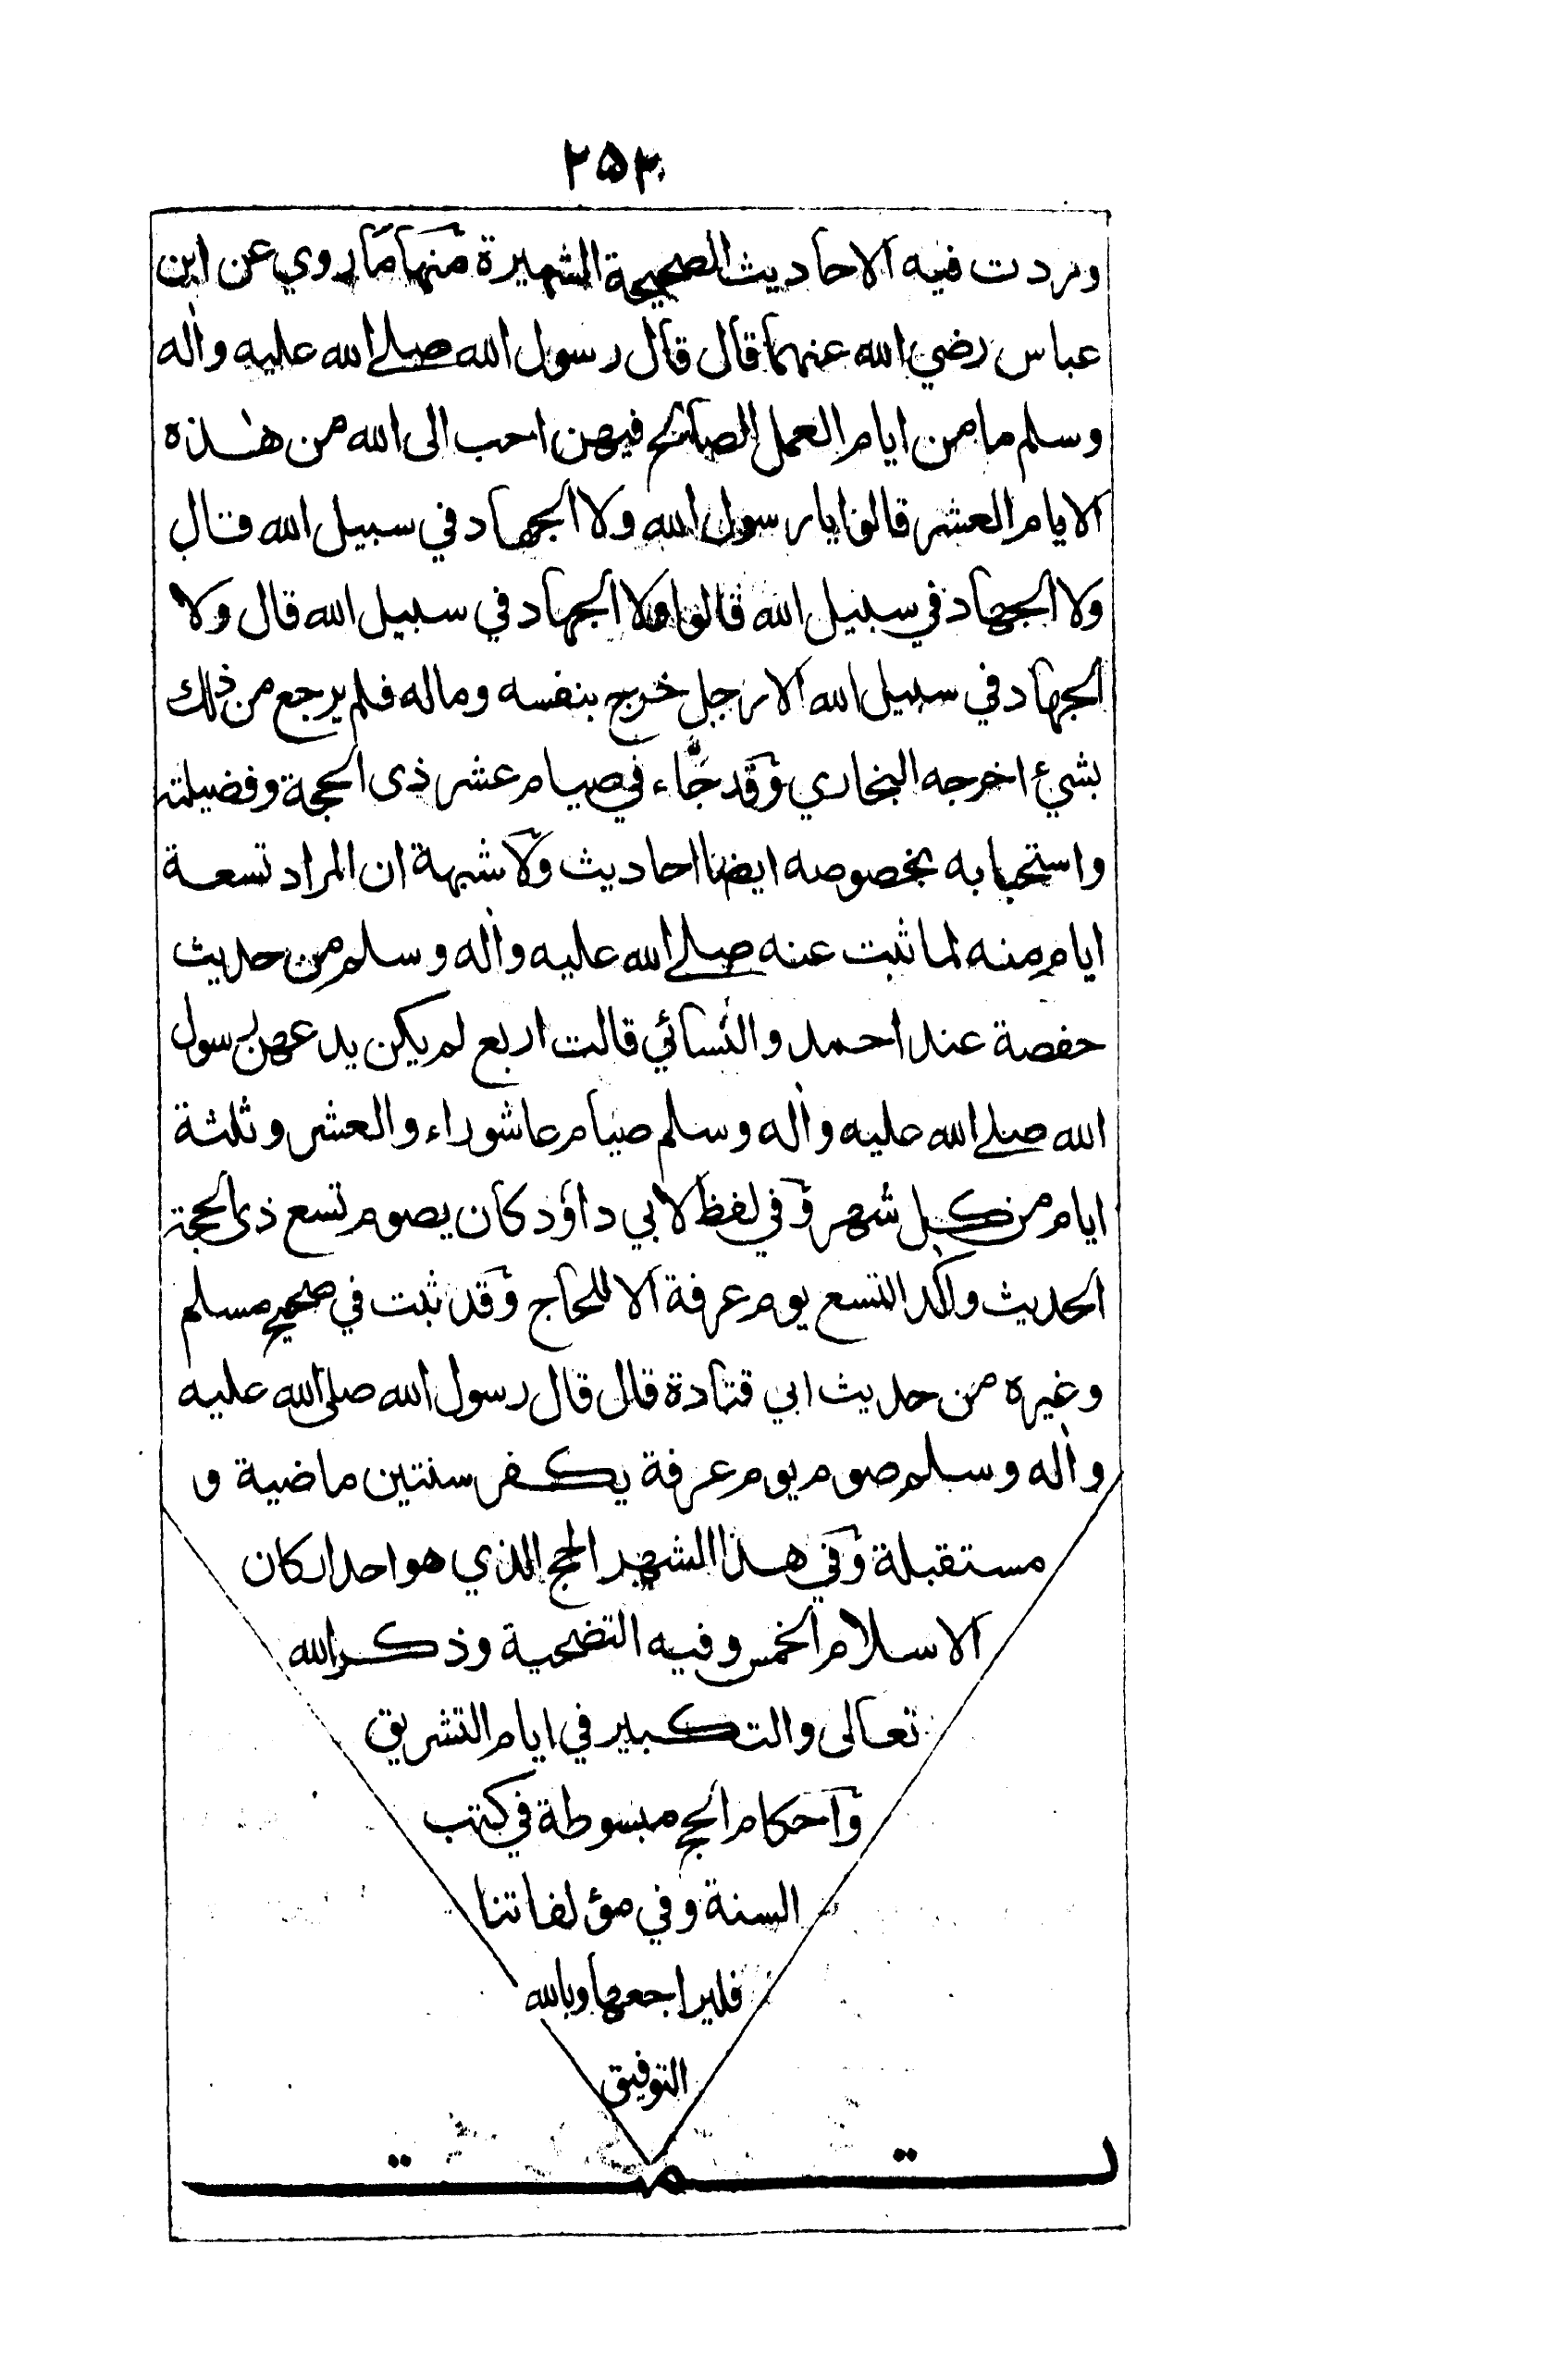 ۲۵۳
وردت فيه الاحاديث الصحيحة الشهيرة منها ما روي عن ابن
عباس رضي الله عنهما قال قال رسول الله صلے الله عليه واٰله
وسلم ما من ايام العمل الصالح فيهن احب الى الله من هٰذه
الايام العشر قالوا يا رسول الله ولا الجهاد في سبيل الله قال
ولا الجهاد في سبيل الله قالوا ولا الجهاد في سبيل الله قال ولا
الجهاد في سبيل الله الا رجل خرج بنفسه وماله فلم يرجع من ذلك
بشيئ اخرجه البخاري وقد جاء في صيام عشر ذى الحجة وفضيلته
واستحبابه بخصوصه ايضا احاديث ولا شبهة ان المراد تسعة
ايام منه لما ثبت عنه صلے الله عليه واٰله وسلم من حديث
حفصة عند احمد والنسائي قالت اربع لم يكن يدعهن رسول
الله صلے الله عليه واٰله وسلم صيام عاشوراء والعشر وثلثة
ايام من كل شهر وفي لفظ لابي داؤد كان يصوم تسع ذى الحجة
الحديث واٰكد التسع يوم عرفة الا للحاج وقد ثبت في صحيح مسلم
وغيره من حديث ابي قتادة قال قال رسول الله صلى الله عليه
واٰله وسلم صوم يوم عرفة يكفر سنتين ماضية و
مستقبلة وفي هذا الشهر الحج الذي هو احد اركان
الاسلام الخمس وفيه التضحية وذكر الله
تعالى والتكبير في ايام التشريق
واحكام الحج مبسوطة في كتب
السنة وفي مؤلفاتنا
فليراجعها وبالله
التوفيق
تمت